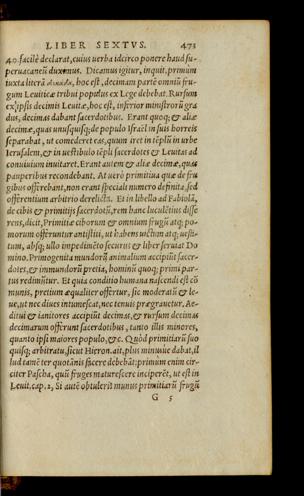 LIBER SEXTVS. 473
40. facilè declarat, cuius verba idcirco ponere haud su-
peruacaneũ duximus. Dicamus igitur, inquit, primùm
iuxta literã hoc est, decimam parte omniũ fru-
gum Leuiticæ tribui populus ex Lege debebat. Rursum
ex ipsis decimis Leuitæ, hoc est, inferior ministrorũ gra
dus, decimas dabant sacerdotibus. Erant quoq; & aliæ
decimæ, quas unusquisq; de populo Israël in suis horreis
separabat, ut comederet eas, quum iret in tẽplũ in urbe
Ierusalem, & in uestibulo tẽpli sacerdotes & Leuitas ad
conuiuium inuitaret. Erant autem & aliæ decimæ, quas
pauperibus recondebant. At uerò primitiua quæ de fru
gibus offerebant, non erant speciali numero definita, sed
offerentium arbitrio derelicta. Et in libello ad Fabiolã,
de cibis & primitijs sacerdotũ, rem hanc luculẽtius disse
rens, dicit, Primitiæ ciborum & omnium frugũ atq; po-
morum offeruntur antistiti, ut habens uictum atq; uesti-
tum, absq; ullo impedimẽto securus & liber seruiat Do
mino. Primogenita mundorũ animalium accipiũt sacer-
dotes, & immundorũ pretia, hominũ quoq; primi par-
tus redimũtur. Et quia conditio humana nascendi est cõ
munis, pretium æqualiter offertur, sic moderatũ & le-
ue, ut nec diues intumescat, nec tenuis prægrauetur. Ae-
ditui & ianitores accipiũt decimas, & rursum decimas
decimarum offerunt sacerdotibus, tanto illis minores,
quanto ipsi maiores populo, &c. Quòd primitiarũ suo
quisq; arbitratu, sicut Hieron. ait, plus minusue dabat, il
lud tamẽ ter quotãnis facere debebãt: primùm enim cir-
citer Pascha, quũ fruges maturescere inciperẽt, ut est in
Leuit. cap. 2, Si autẽ obtulerit munus primitiarũ frugũ
G 5